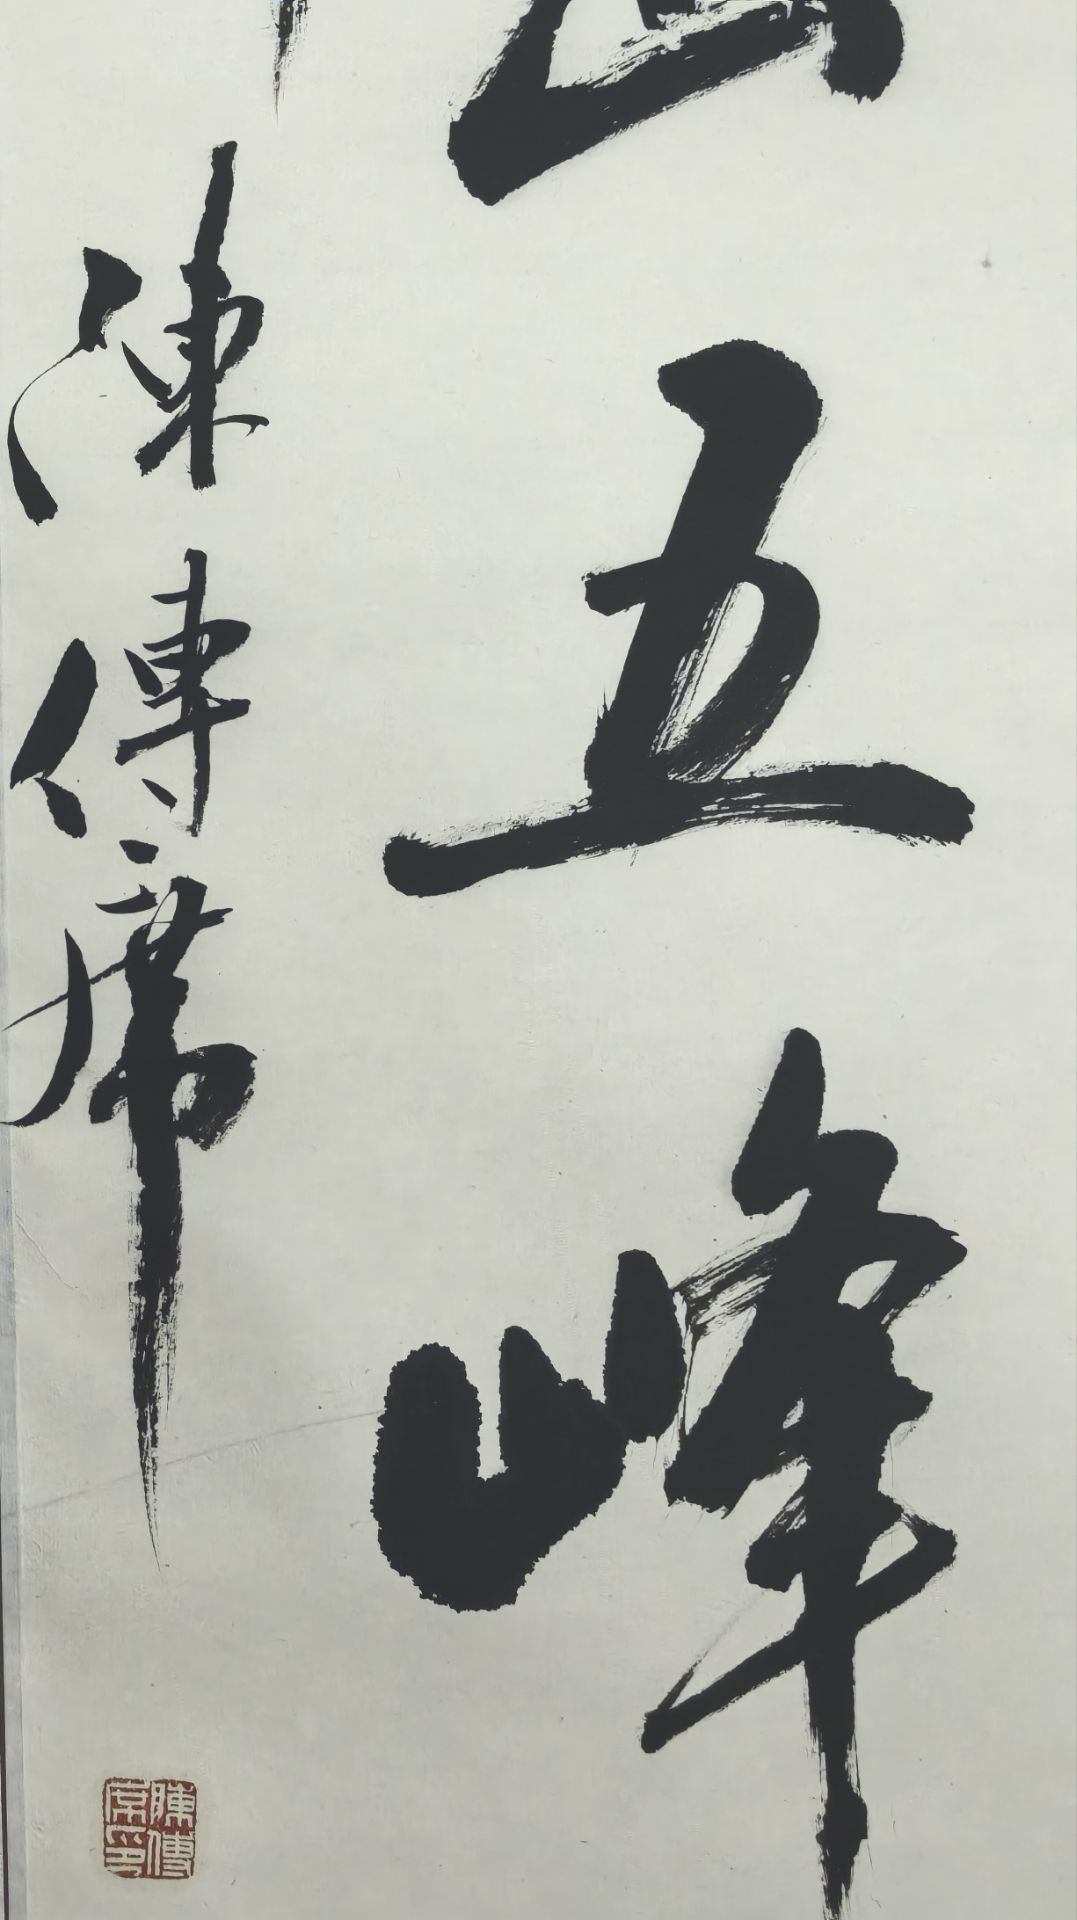 山五峰
陳傳席
陳傳席印